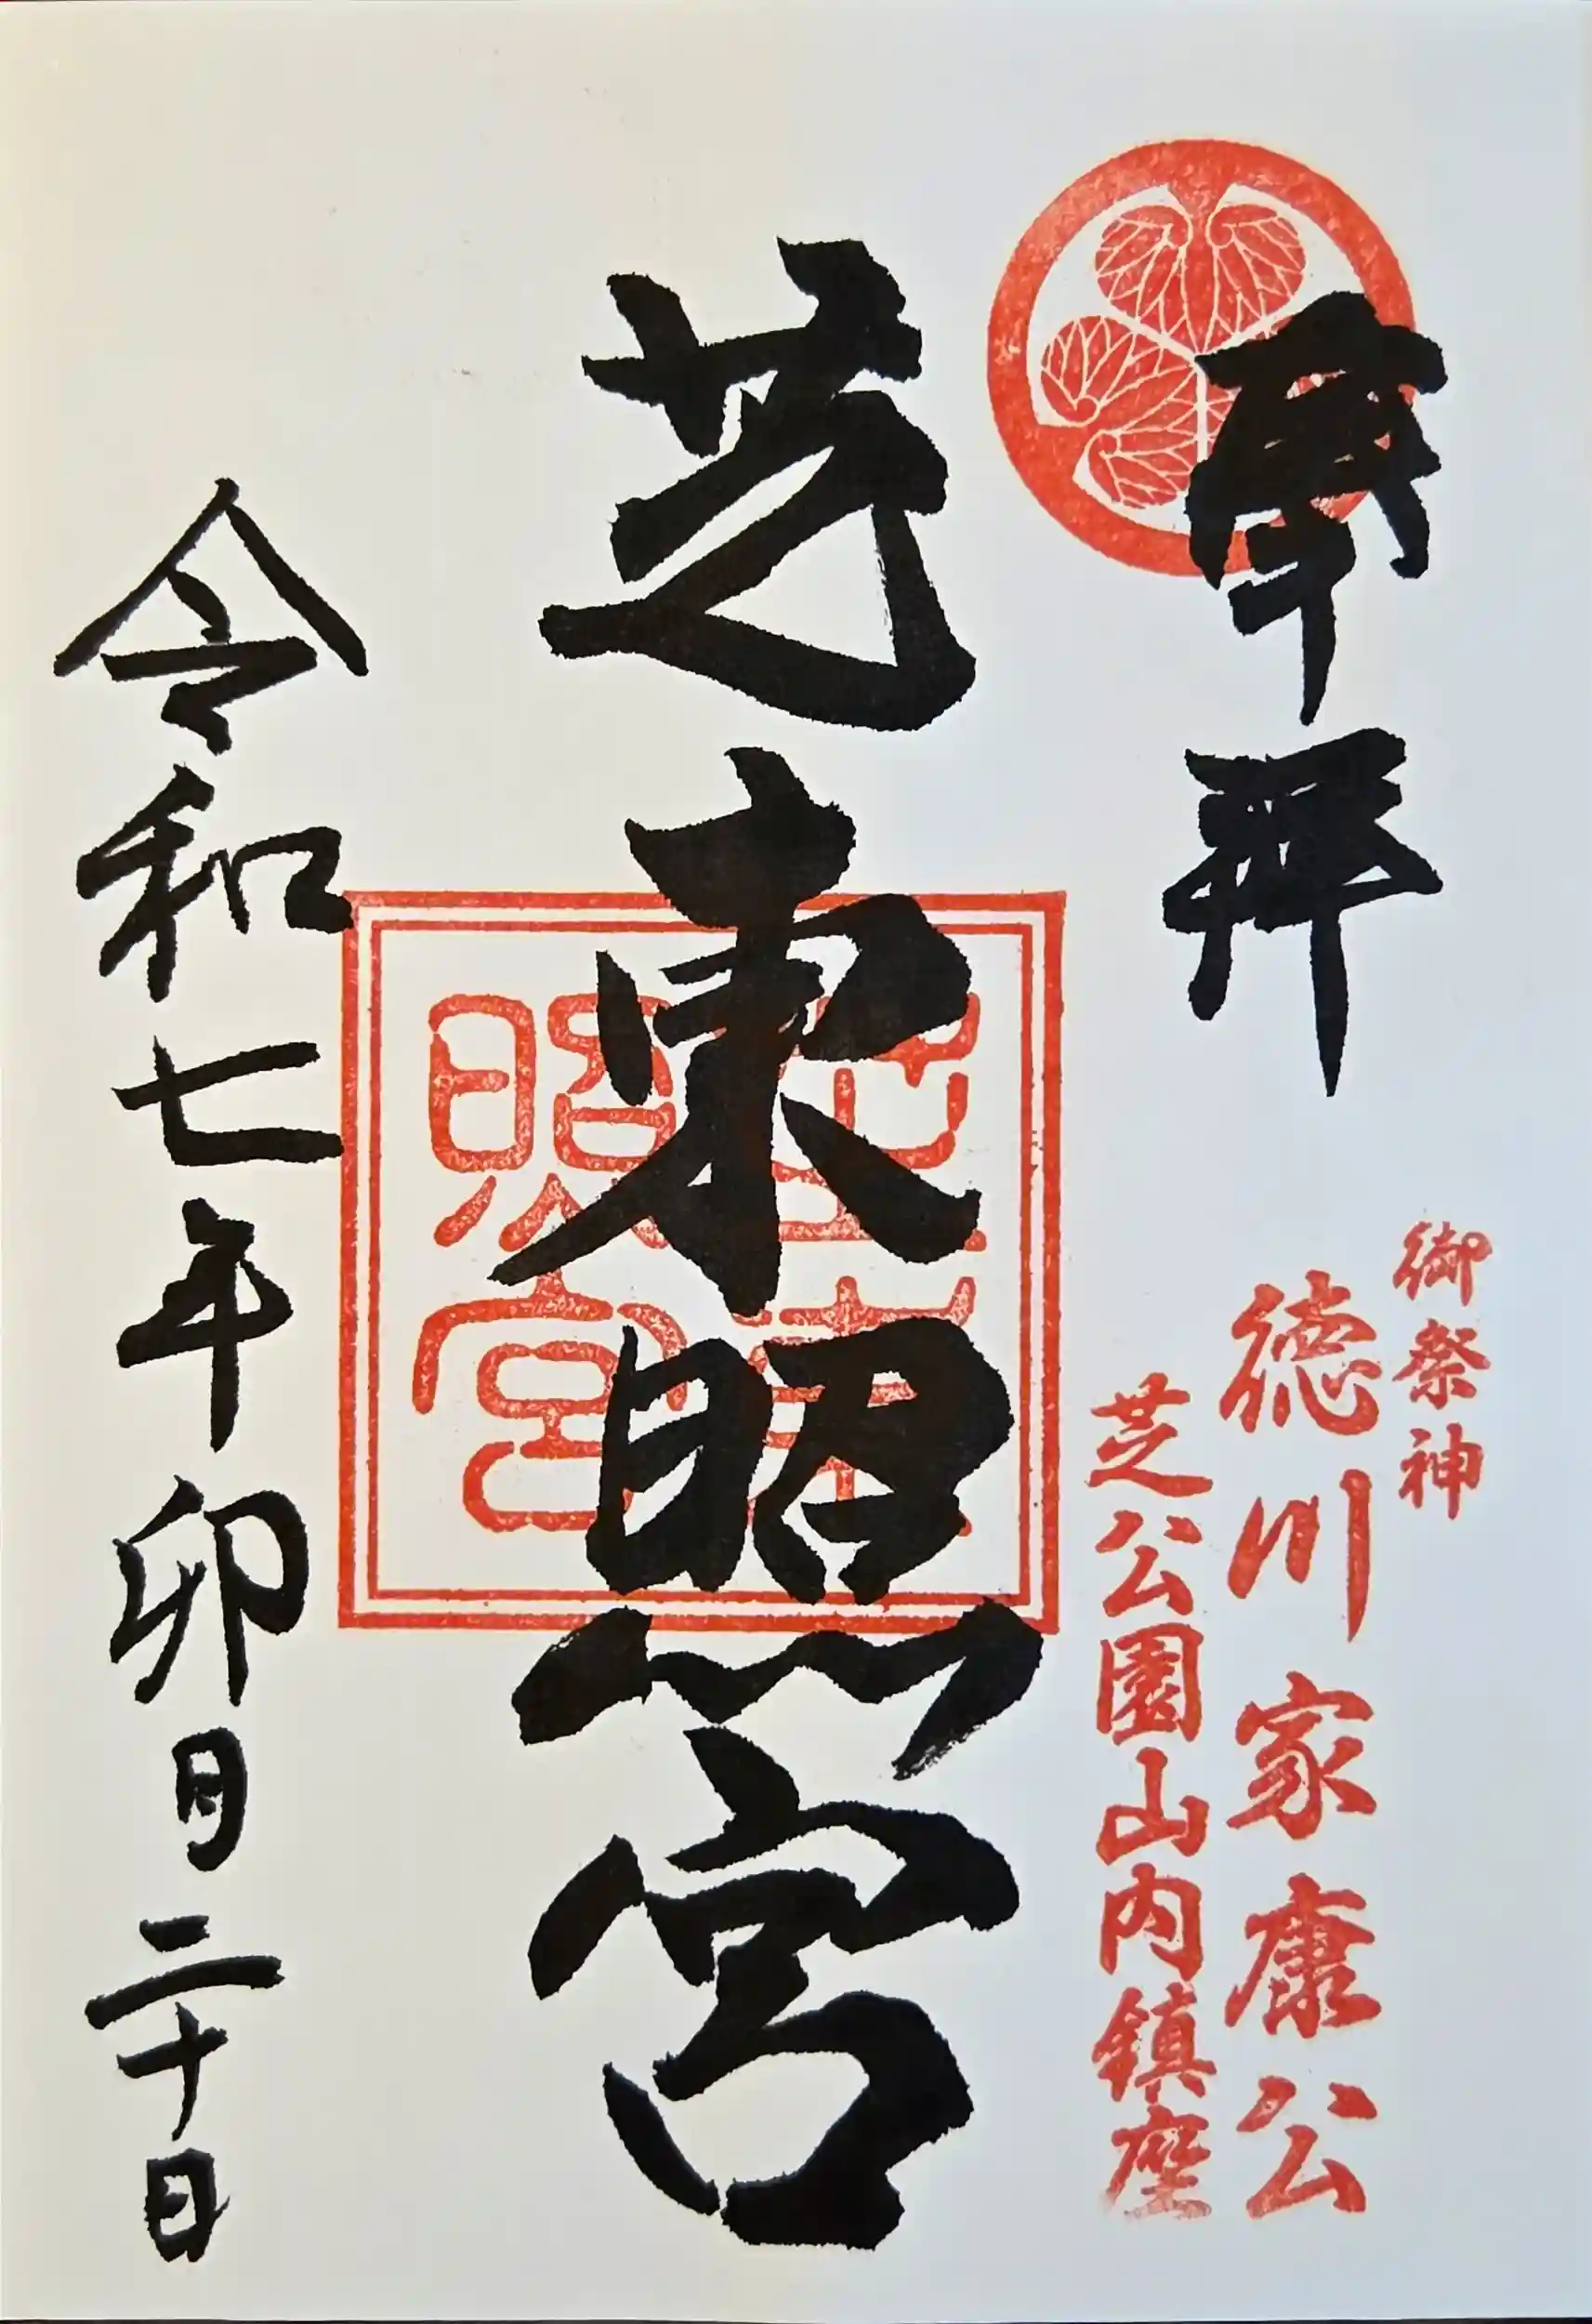 奉拝
御祭神
徳川家康公
芝公園山内鎮座
芝東照宮
照宮
令和七年卯月二十日